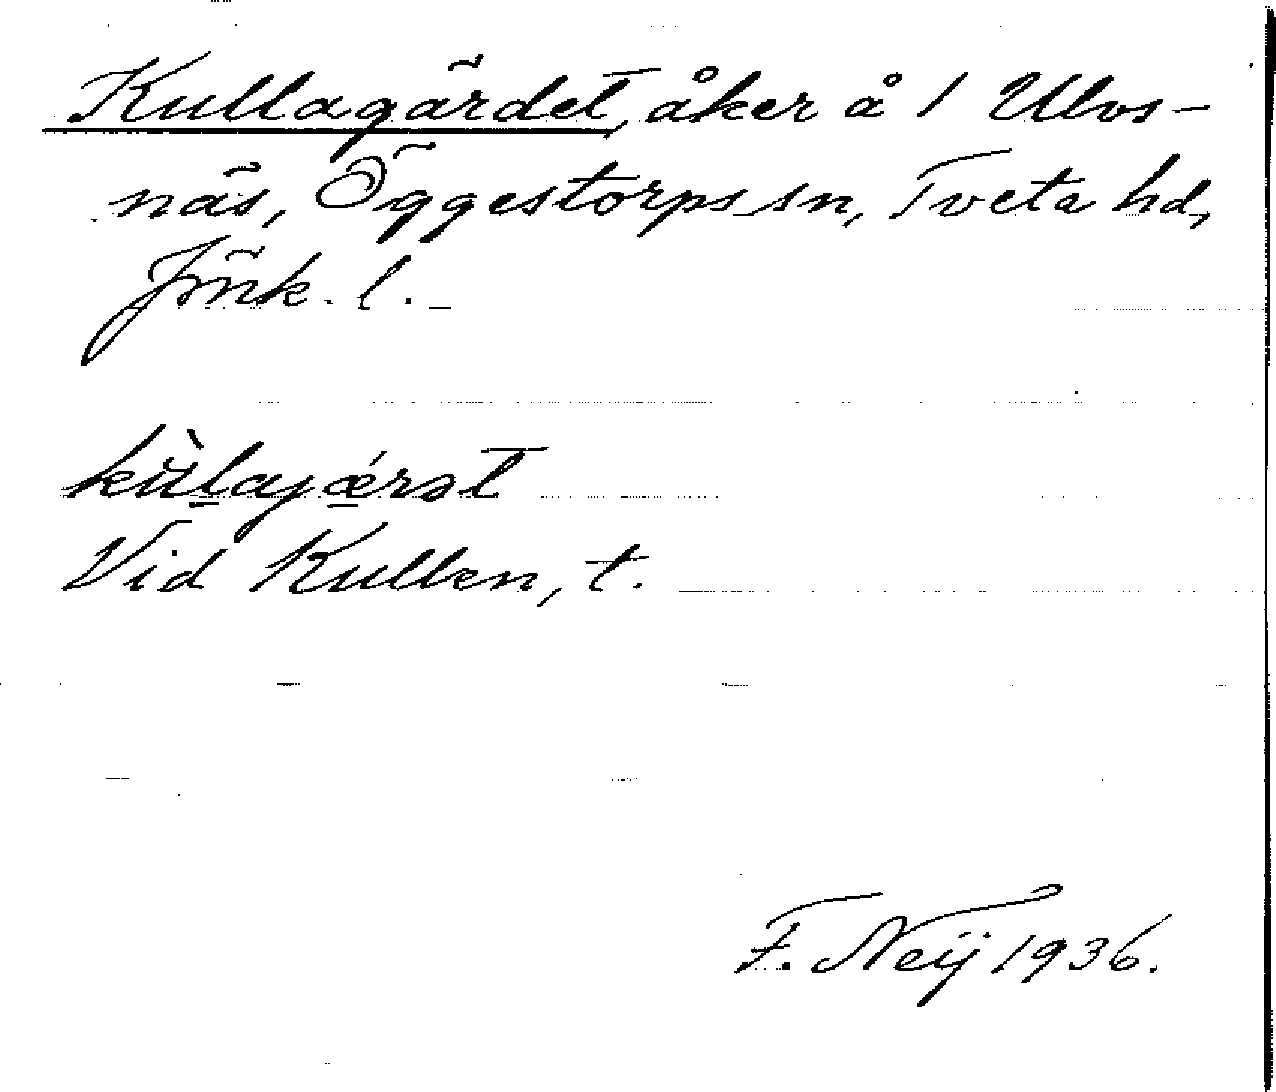 Kullagärdet, åker å 1 Ulvs-
näs, Öggestorps sn, Tveta hd,
Jönk. l.
kùlajǽrət
Vid Kullen, t.
F. Neij 1936.